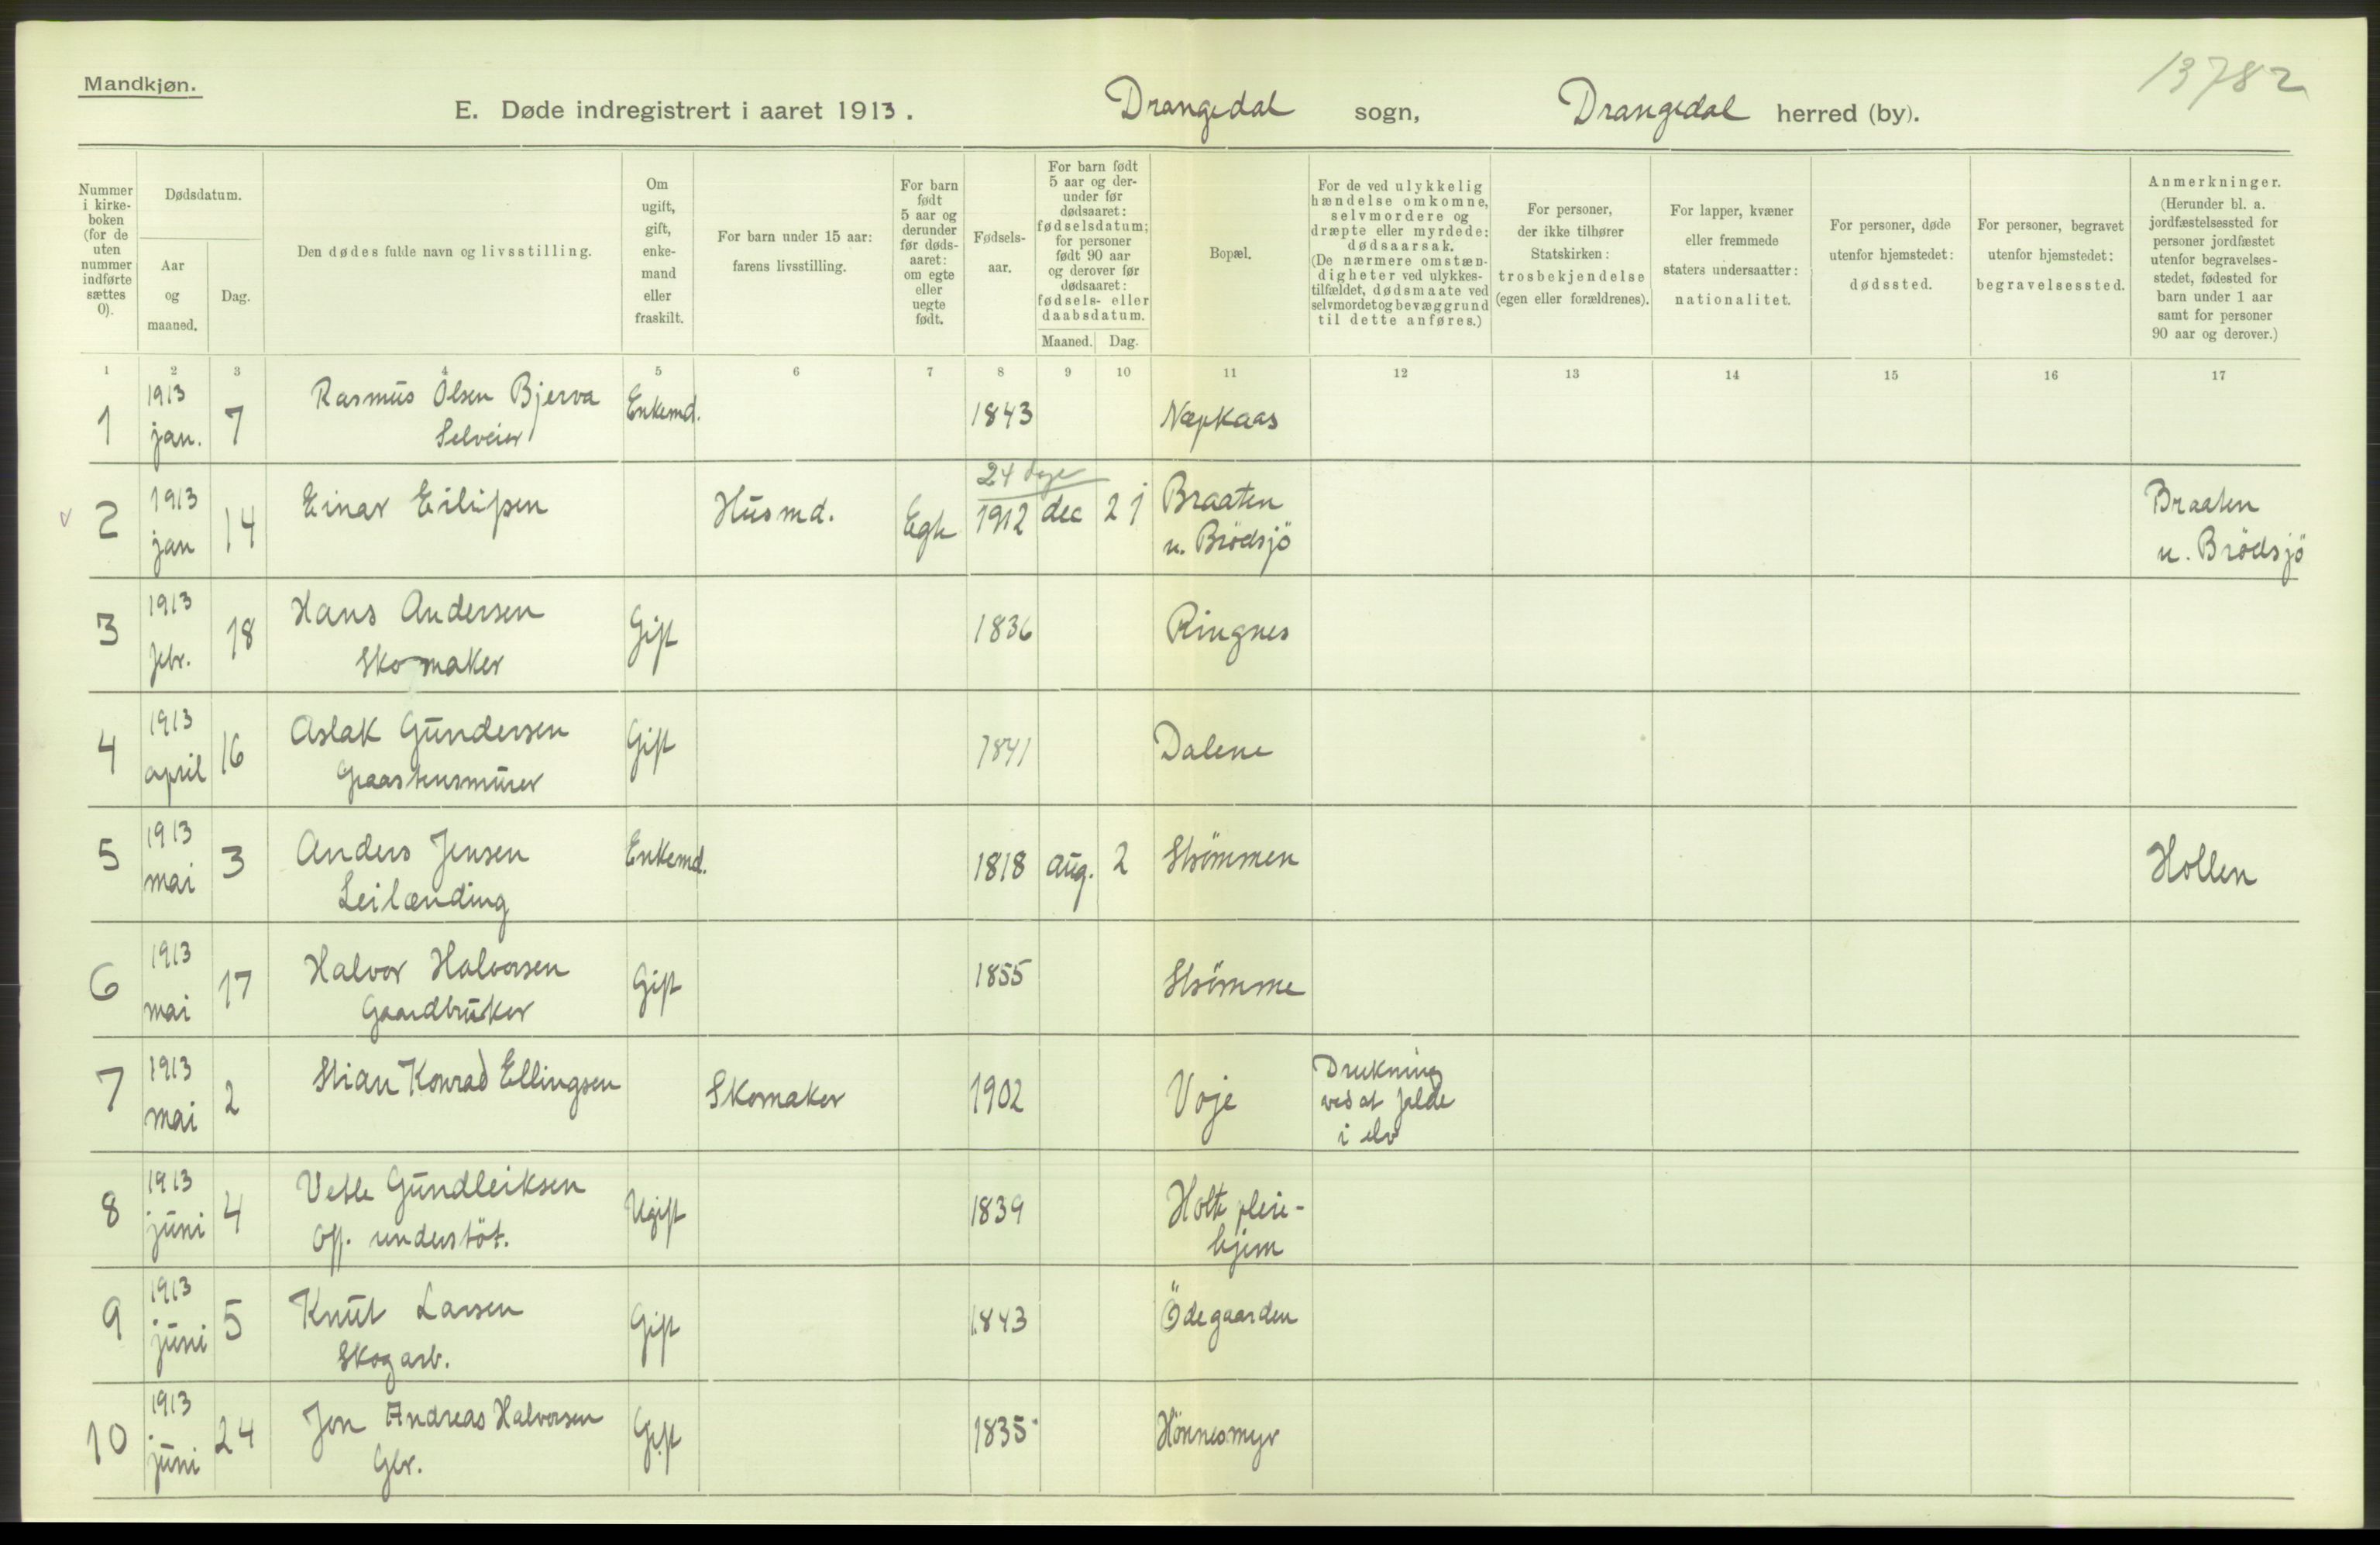 13782
Mandkjøn.
E. Døde indregistrert i aaret 1913. Drangedal sogn, Drangedal herred (by).
Nummer i kirke-boken (for de uten nummer indførte sættes 0).
Dødsdatum.
Aar og maaned.
Dag.
Den dødes fulde navn og livsstilling.
Om ugift, gift, enke-mand eller fraskilt.
For barn under 15 aar: farens livsstilling.
For barn født 5 aar og derunder før døds-aaret: om egte eller uegte født.
Fødsels-aar.
For barn født 5 aar og der-under før dødsaaret: fødselsdatum; for personer født 90 aar og derover før dødsaaret: fødsels- eller daabsdatum.
Maaned. Dag.
Bopæl.
For de ved ulykkelig hændelse omkomne, selvmordere og dræpte eller myrdede: dødsaarsak. (De nærmere omstæn-digheter ved ulykkes-tilfældet, dødsmaate ved selvmordet og bevæggrund til dette anføres.)
For personer, der ikke tilhører Statskirken: trosbekjendelse (egen eller forældrenes).
For lapper, kvæner eller fremmede staters undersaatter: nationalitet.
For personer, døde utenfor hjemstedet: dødssted.
For personer, begravet utenfor hjemstedet: begravelsessted.
Anmerkninger. (Herunder bl. a. jordfæstelsessted for personer jordfæstet utenfor begravelses-stedet, fødested for barn under 1 aar samt for personer 90 aar og derover.)
1 2 3 4 5 6 7 8 9 10 11 12 13 14 15 16 17
1 1913 jan. 7 Rasmus Olsen Bjerva Enkemd. 1843 Næpkaas
Selveier
24 dage
2 1913 jan 14 Einar Eilifsen Husmd. Egte 1912 dec 21 Braaten u. Brödsjö Braaten u. Brödsjö
3 1913 febr. 18 Hans Andersen Gift 1836 Ringnes
Skomaker
4 1913 april 16 Aslak Gundersen Gift 1841 Dalene
Graastensmurer
5 1913 mai 3 Anders Jensen Enkemd. 1818 aug. 2 Strömmen Hollen
Leilænding
6 1913 mai 17 Halvor Halvorsen Gift 1855 Strömme
Gaardbruker
7 1913 mai 2 Stian Konrad Ellingsen Skomaker 1902 Voje Drukning ved at falde i elv
8 1913 juni 4 Vetle Gundleiksen Ugift 1839 Holte pleie-hjem
Off. understöt.
9 1913 juni 5 Knut Larsen Gift 1843 Ödegaarden
Skogarb.
10 1913 juni 24 Jon Andreas Halvorsen Gift 1835 Hönnesmyr
Gbr.